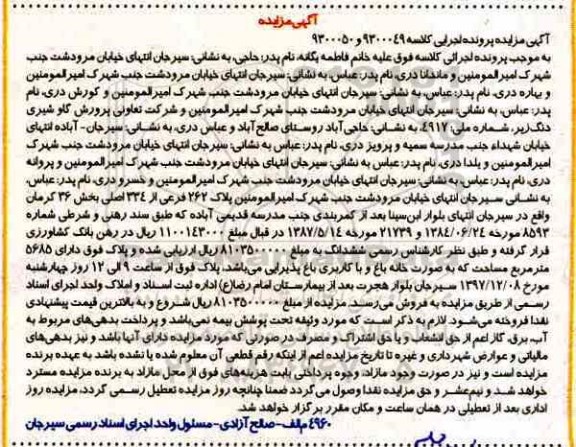 آگهی مزایده
آگهی مزایده پرونده اجرایی کلاسه ۹۳۰۰۰۴۹ و ۹۳۰۰۰۵۰
به موجب پرونده اجرائی کلاسه فوق علیه خانم فاطمه یگانه، نام پدر: حاجی، به نشانی: سیرجان انتهای خیابان مرودشت جنب
شهرک امیرالمومنین و ماندانا دری، نام پدر: عباس، به نشانی: سیرجان انتهای خیابان مرودشت جنب شهرک امیرالمومنین
و بهاره دری، نام پدر: عباس، به نشانی: سیرجان انتهای خیابان مرودشت جنب شهرک امیرالمومنین و کورش دری، نام
پدر: عباس، به نشانی: سیرجان انتهای خیابان مرودشت جنب شهرک امیرالمومنین و شرکت تعاونی پرورش گاو شیری
شماره ملی: ۴۹۱۷، به نشانی: حاجی‌آباد روستای صالح‌آباد و عباس دری، به نشانی: سیرجان - آباده انتهای
خیابان شهداء جنب مدرسه سمیه و پرویز دری، نام پدر: عباس به نشانی: سیرجان انتهای خیابان مرودشت جنب شهرک
امیرالمومنین و یلدا دری، نام پدر: عباس، به نشانی: سیرجان انتهای خیابان مرودشت جنب شهرک امیرالمومنین و پروانه
دری، نام پدر: عباس، به نشانی: سیرجان انتهای خیابان مرودشت جنب شهرک امیرالمومنین و خسرو دری، نام پدر: عباس،
به نشانی سیرجان انتهای خیابان مرودشت جنب شهرک امیرالمومنین پلاک ۲۶۲ فرعی از ۳۳۴ اصلی بخش ۳۶ کرمان
واقع در سیرجان انتهای بلوار ابن‌سینا بعد از کمربندی جنب مدرسه قدیمی آباده که طبق سند رهنی و شرطی شماره
۸۵۹۳ مورخه ۱۳۸۴/۰۶/۲۴ و ۲۱۷۳۹ مورخه ۱۳۸۷/۵/۱۴ در قبال مبلغ ۱۱۰۰۱۴۳۰۰۰ ریال در رهن بانک کشاورزی
قرار گرفته و طبق نظر کارشناس رسمی ششدانگ به مبلغ ۸۱۰۳۵۰۰۰۰۰ ریال ارزیابی شده و پلاک فوق دارای ۵۶۸۵
مترمربع مساحت که به صورت خانه باغ و با کاربری باغ پذیرایی می‌باشد، پلاک فوق از ساعت ۹ الی ۱۲ روز چهارشنبه
مورخ ۱۳۹۷/۱۲/۰۸ سیرجان بلوار هجرت بعد از بیمارستان امام رضا(ع) اداره ثبت اسناد و املاک واحد اجرای اسناد
رسمی از طریق مزایده به فروش می‌رسد. مزایده از مبلغ ۸۱۰۳۵۰۰۰۰۰ ریال شروع و به بالاترین قیمت پیشنهادی
نقدا فروخته می‌شود. لازم به ذکر است که مورد وثیقه تحت پوشش بیمه نمی‌باشد و پرداخت بدهی‌های مربوط به
آب، برق، گاز اعم از حق انشعاب و یا حق اشتراک و مصرف در صورتی که مورد مزایده دارای آنها باشد و نیز بدهی‌های
مالیاتی و عوارض شهرداری و غیره تا تاریخ مزایده اعم از اینکه رقم قطعی آن معلوم شده یا نشده باشد به عهده برنده
مزایده است و نیز در صورت وجود مازاد، وجوه پرداختی بابت هزینه‌های فوق از محل مازاد به برنده مزایده مسترد
خواهد شد و نیم‌عشر و حق مزایده نقدا وصول می‌گردد ضمنا چنانچه روز مزایده تعطیل رسمی گردد، مزایده روز
اداری بعد از تعطیلی در همان ساعت و مکان مقرر برگزار خواهد شد.
۴۹۶۰ م الف - صالح آزادی - مسئول واحد اجرای اسناد رسمی سیرجان